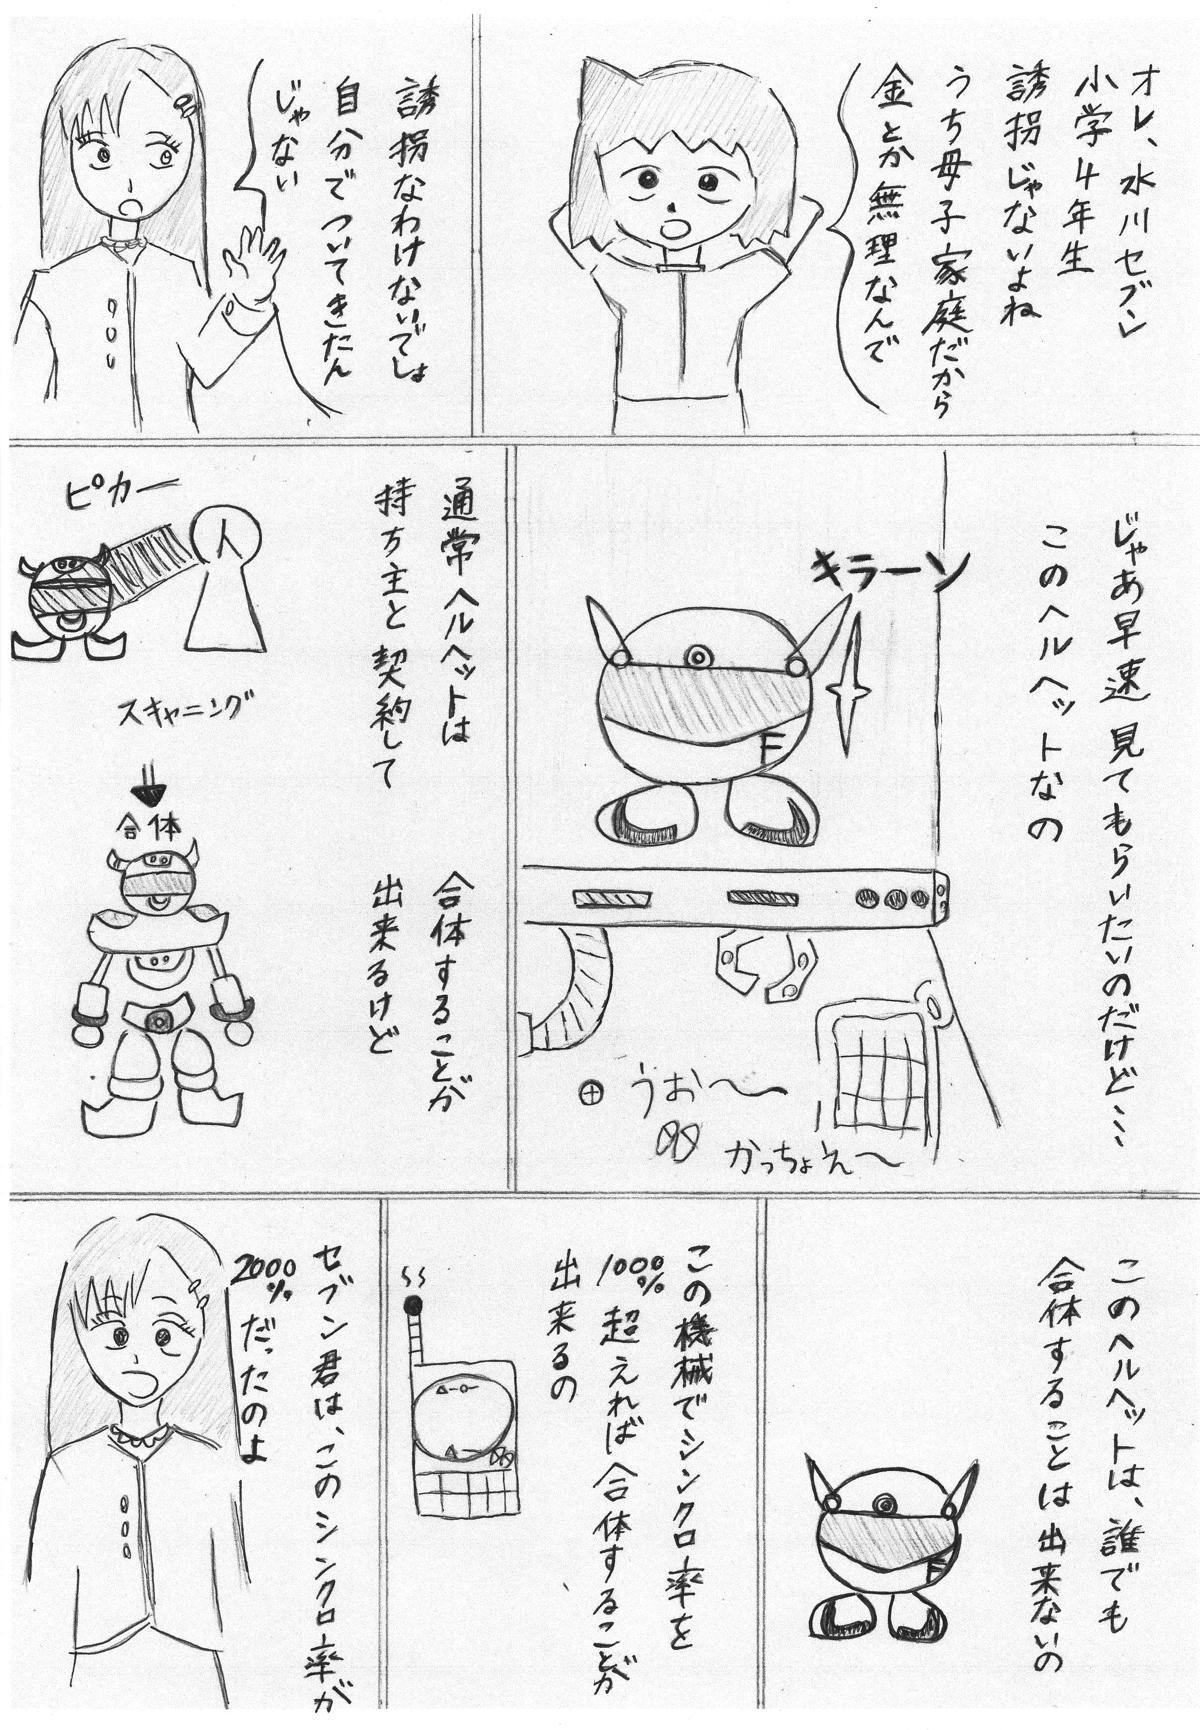 オレ、水川セブン
小学4年生
誘拐じゃないよね
うち母子家庭だから
金とか無理なんで
誘拐なわけないでしょ
自分でついてきたん
じゃない
じゃあ早速見てもらいたいのだけど…
このヘルヘットなの
キラーン
F
うお〜
かっちょえ〜
通常ヘルヘットは
持ち主と契約して
合体することが
出来るけど
ピカー
人
スキャニング
合体
このヘルヘットは、誰でも
合体することは出来ないの
F
この機械でシンクロ率を
1000%超えれば合体することが
出来るの
セブン君は、このシンクロ率が
2000%だったのよ